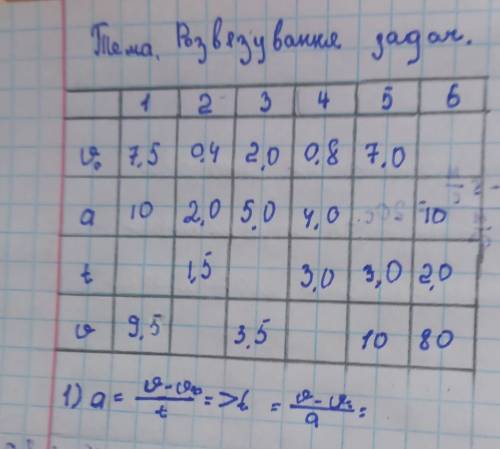 Тема. Розвязування задач.
1 2 3 4 5 6
v₀ 7,5 0,4 2,0 0,8 7,0
a 10 2,0 5,0 4,0 10
t 1,5 3,0 3,0 2,0
v 9,5 3,5 10 80
1) a = v-v₀/t => t = v-v₀/a =